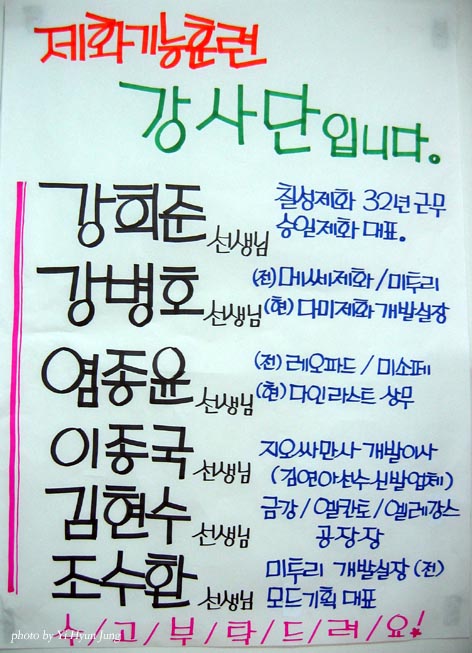 제화기능훈련
강사단입니다.
강희준 선생님 칠성제화 32년 근무
승일제화 대표.
강병호 선생님 (전) 메쎄제화 / 미투리
(현) 다미제화 개발실장
염종윤 선생님 (전) 레오파드 / 미소페
(현) 다인라스트 상무
이종국 선생님 지오싸만사 개발이사
(김연아선수신발업체)
김현수 선생님 금강 / 엘칸토 / 엘레강스
공장장
조수환 선생님 미투리 개발실장 (전)
모드기획 대표
수/고/부/탁/드/려/요!
photo by Yi Hyun Jung